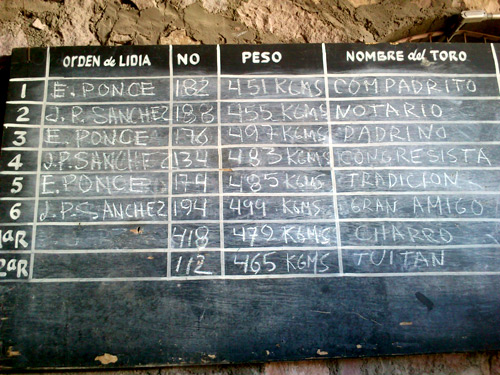 ORDEN de LIDIA NO PESO NOMBRE del TORO
1 E. PONCE 182 451 KGMS COMPADRITO
2 J. P. SANCHEZ 188 455 KGMS NOTARIO
3 E. PONCE 176 497 KGMS PADRINO
4 J.P. SANCHEZ 134 483 KGMS CONGRESISTA
5 E. PONCE 174 485 KGMS TRADICION
6 J.P.SANCHEZ 194 499 KGMS GRAN AMIGO
1aR 418 479 KGMS CHARRO
2aR 112 465 KGMS TUITAN